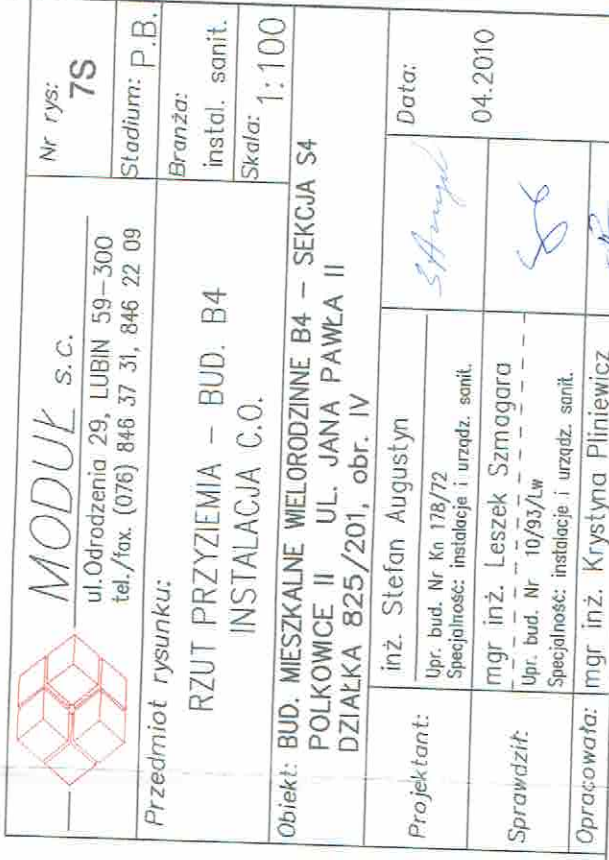 MODUŁ s.c.
ul.Odrodzenia 29, LUBIN 59-300
tel./fax. (076) 846 37 31, 846 22 09
Nr rys:
7S
Stadium: P.B.
Przedmiot rysunku:
RZUT PRZYZIEMIA – BUD. B4
INSTALACJA C.O.
Branża:
instal. sanit.
Skala: 1:100
Obiekt: BUD. MIESZKALNE WIELORODZINNE B4 – SEKCJA S4
POLKOWICE II UL. JANA PAWŁA II
DZIAŁKA 825/201, obr. IV
Projektant:
inż. Stefan Augustyn
Upr. bud. Nr Kn 178/72
Specjalność: instalacje i urządz. sanit.
Data:
04.2010
Sprawdził:
mgr inż. Leszek Szmagara
Upr. bud. Nr 10/93/Lw
Specjalność: instalacje i urządz. sanit.
Opracowała: mgr inż. Krystyna Pliniewicz